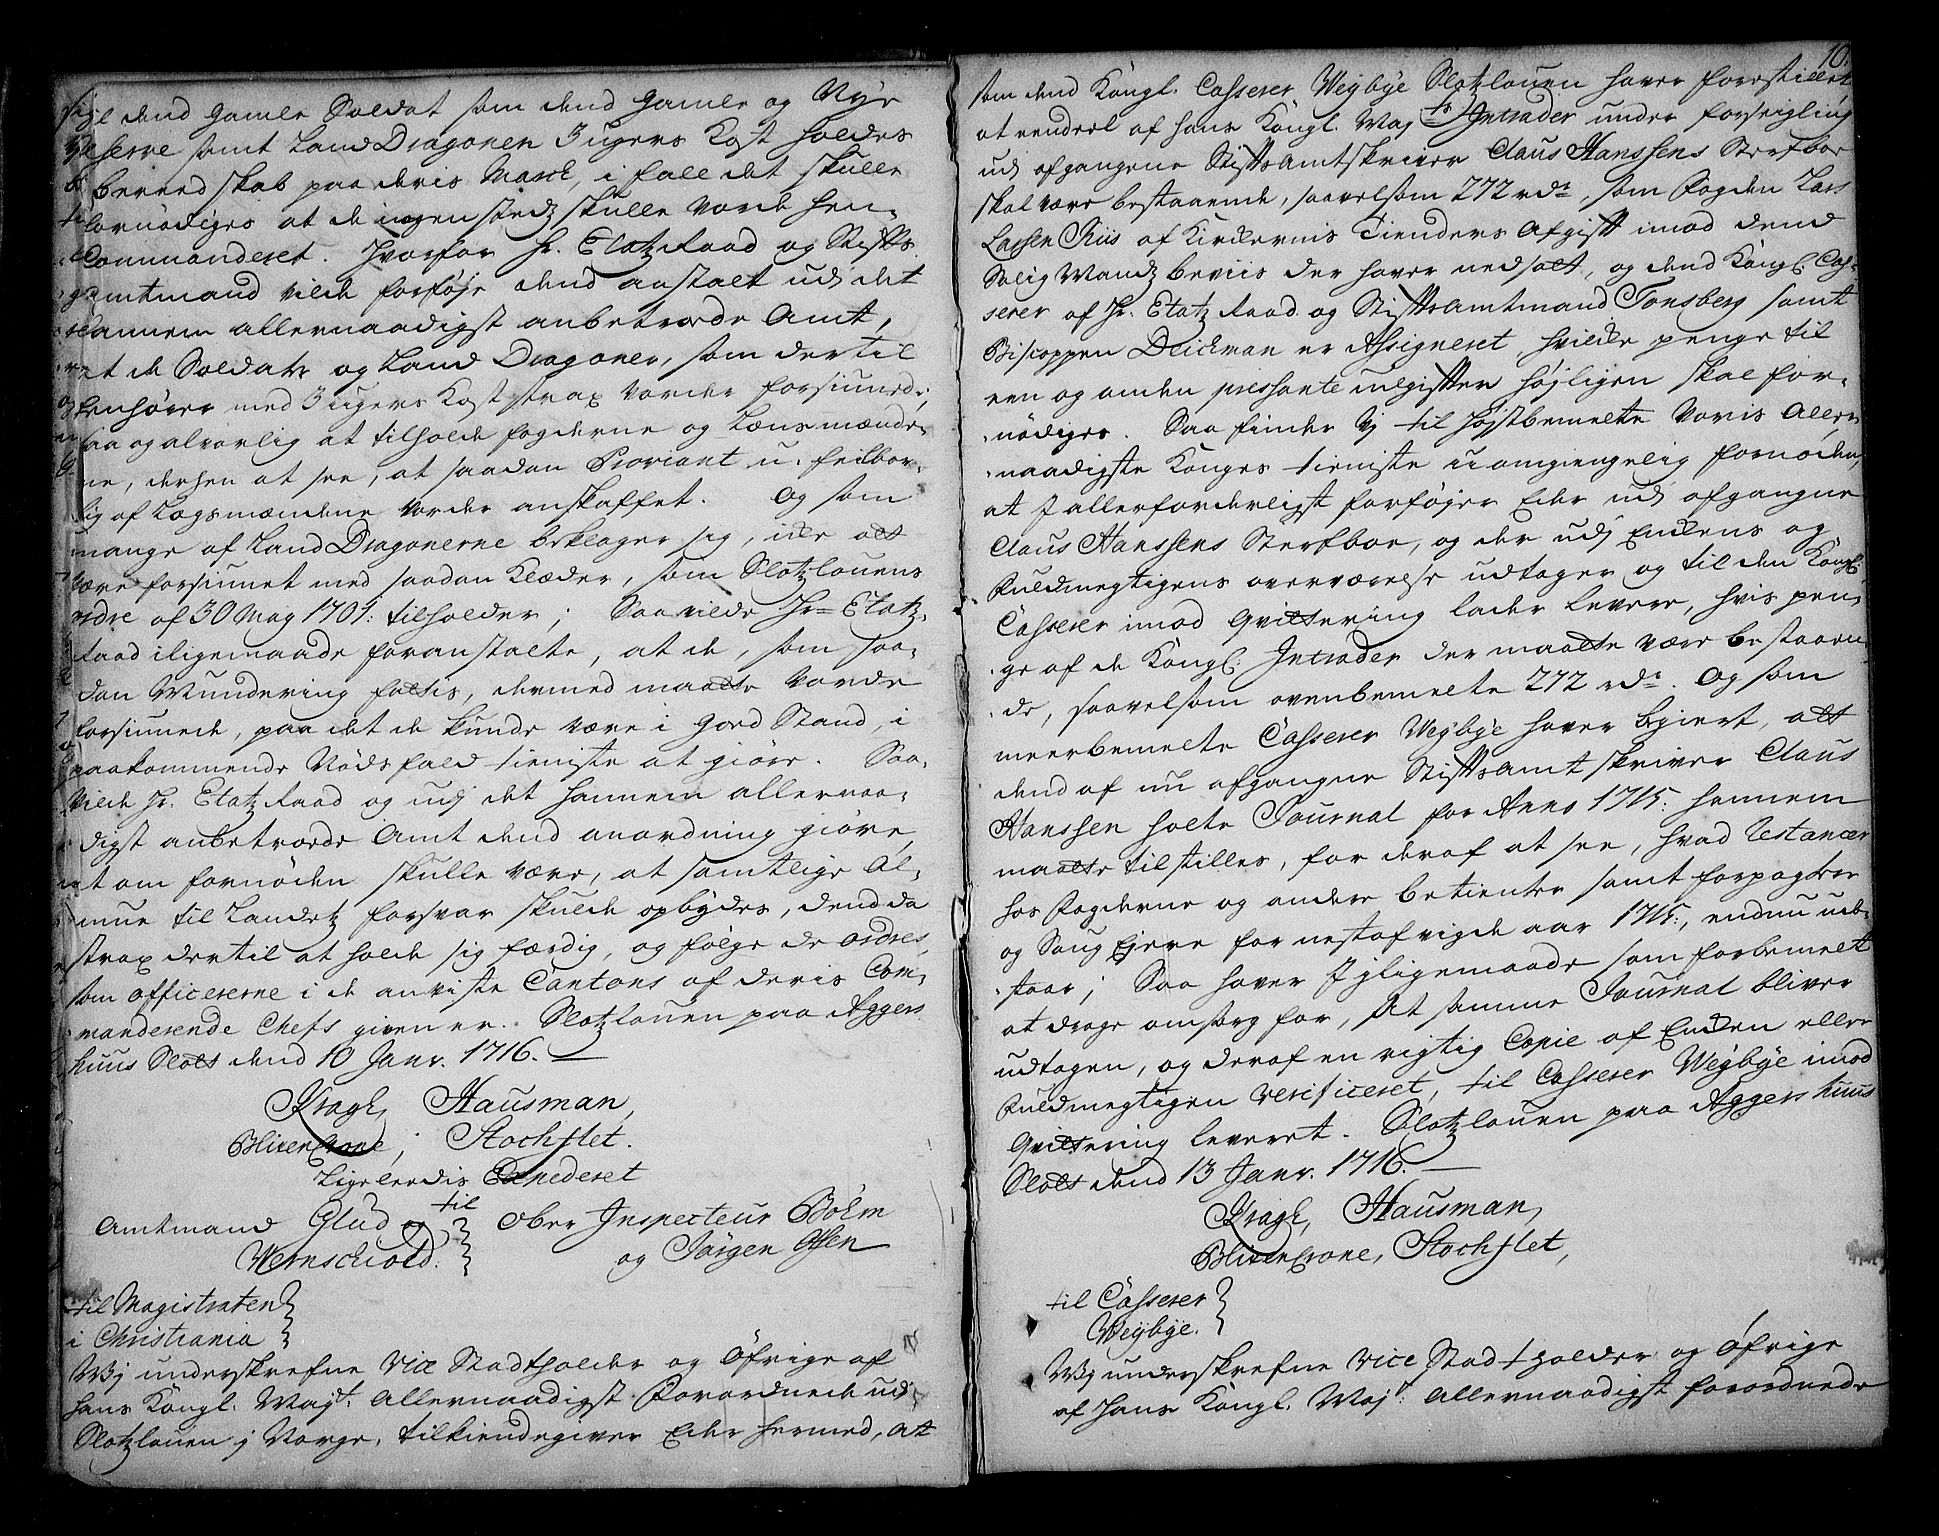 dend gamle Soldat som dend gamle og Nye
Reserve samt Land Dragonen 3 ugers Kost holdes
bereedskab paa deris March, i fall det skulle
fornødiges at de ingenstedz skulle vorde hen-
Commanderet. Hvorfor Hr. Etatz Raad og Stifts
amtmand vilde forføje dend anstalt udj det
hannem allernaadigst anbetroede Amt,
at de Soldater og Land Dragoner, som dertil
henhører med 3 ugers Kost strax vorder forsiuned;
saa og alvorlig at tilholde fogderne og Lænsmænde-
ne, derhen at see, at saadan Proviant u-feilbar-
lig af Lægsmændene vorder anskaffet. Og som
mange af Land Dragonerne beklager sig, icke alt
være forsiunet med saadan Klæder, som Slotzlovens
ordre af 30 May 1701: tilholder; Saa vilde Hr. Etatz-
Raad iligemaade foranstalte, at de, som saa-
dan Mundering fattis, dermed maatte vorde
forsiunede, paa det de kunde være i goed Stand, i
paakommende Nødsfald tieniste at giøre. Saa
vilde Hr. Etatz Raad og udj det hannem allernaa-
digst anbetroede Amt dend anordning giøre,
at om fornøden skulle være, at samtlige Al-
mue til Landetz forsvar skulde opbydes, dend da
strax dertil at holde sig færdig, og følge de ordres,
som officererne i de anviste Cantons af deris Com-
manderende Chefs given er. Slotzloven paa Aggers
huus Slott dend 10 Janr. 1716.
Kragh, Hausman,
Blixencrone, Stochflet.
Ligeleedis Expederet
til
Amtmand Glud og Ober Inspecteur Böhm
Wernschiold. og Jørgen Ofsen
til Magistraten
i Christiania
Wj underskrefne Vice Stadtholder og Øfrige af
hans Kongl. Mayt. Allernaadigst Forordnede udj
Slotzloven j Norge, tilkiendegiver Eder hermed, at
10.
som dend Kongl. Casserer Weybye Slotzloven haver forestillet
at eendeel af hans Kongl. Maj ts Intrader under forseigling
udj afgangene Stiftsamtskriver Claus Hanssens Sterfboe
skal være bestaaende, saavelsom 272 rdr, som Fogden Lars
Lassen Riis af Kirckernis Tienders Afgift imod dend
Salig Mandz beviis der haver nedsatt, og dend Kongl Cas-
serer af Hr. Etatz Raad og Stiftsamtmand Tonsberg samt
Biscoppen Deichman er Assigneret, hvilcke penge til
een og anden pressante udgifter højligen skal for-
nødiges. Saa finder Vj til højstbemelte Voris Aller-
naadigste Konges tieniste uomgiengelig fornøden,
at I allerforderligst forføjer Eder udj afgangne
Claus Hanssens Sterfboe, og der udj Enckens og
Fuldmegtigens overværelse udtager og til den Kongl.
Casserer imod Qvittering lader levere, hvis pen-
ge af de Kongl. Intrader der maatte være bestaaen
de, saavelsom ovenbemelte 272 rdr. Og som
meerbemelte Casserer Weybye haver begiert, att
dend af nu afgangne Stiftsamtskriver Claus
Hanssen holte Journal for Anno 1715: hannem
maatte tilstilles, for deraf at see, hvad Restancer
hos Fogderne og andere betiente samt forpagter
og Saug Ejere for nestafvigde aar 1715:, endnu ude-
staar; Saa haver I jligemaade som forbemelt
at drage omsorg for, At samme Journal bliver
udtagen, og deraf en rigtig Copie af Encken eller
Fuldmegtigen verificeret, til Casserer Weybye imod
Qvittering leveret. Slotzloven paa Aggershuus
Slott dend 13 Janr. 1716.
Kragh, Hausman,
Blixencrone, Stochflet,
til Casserer
Weybye.
Wj underskrefne vice Stadtholder og Øfrige
af Hans Kongl. Majt: Allernaadigst forordnede